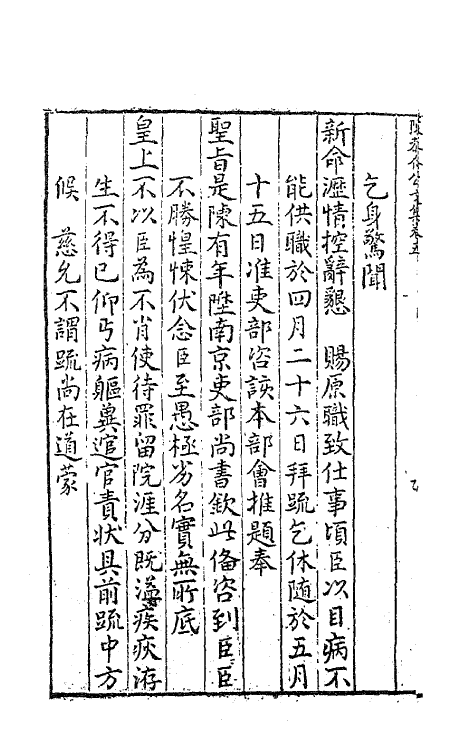 陳恭介公文集卷五
乞身驚聞
新命瀝情控辭懇　賜原職致仕事頃臣以目病不
能供職於四月二十六日拜疏乞休隨於五月
十五日准吏部咨該本部會推題奉
聖旨是陳有年陞南京吏部尚書欽此偹咨到臣臣
不勝惶悚伏念臣至愚極劣名實無所底
皇上不以臣為不肖使待罪留院涯分既溢疾疢洊
生不得已仰丐病軀冀逭官責狀具前疏中方
候　慈允不謂疏尚在道蒙